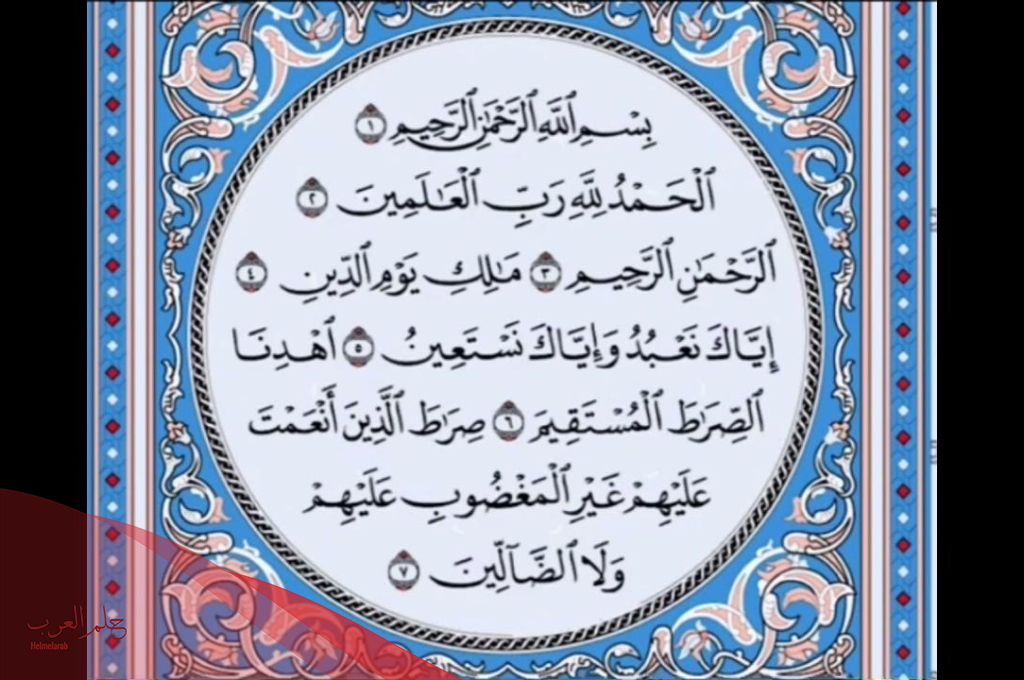 بِسْمِ ٱللَّهِ ٱلرَّحْمَٰنِ ٱلرَّحِيمِ ١
ٱلْحَمْدُ لِلَّهِ رَبِّ ٱلْعَٰلَمِينَ ٢
ٱلرَّحْمَٰنِ ٱلرَّحِيمِ ٣ مَٰلِكِ يَوْمِ ٱلدِّينِ ٤
إِيَّاكَ نَعْبُدُ وَإِيَّاكَ نَسْتَعِينُ ٥ ٱهْدِنَا
ٱلصِّرَٰطَ ٱلْمُسْتَقِيمَ ٦ صِرَٰطَ ٱلَّذِينَ أَنْعَمْتَ
عَلَيْهِمْ غَيْرِ ٱلْمَغْضُوبِ عَلَيْهِمْ
وَلَا ٱلضَّآلِّينَ ٧
حلم العرب
Helmelarab